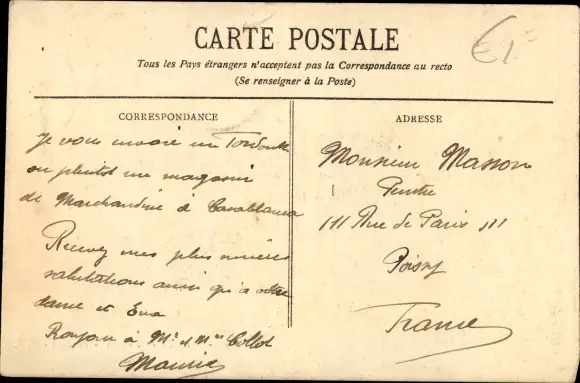 CARTE POSTALE
€1=
Tous les Pays étrangers n'acceptent pas la Correspondance au recto
(Se renseigner à la Poste)
CORRESPONDANCE
Je vous envoie un
ou plutôt un magasin
de Marchandise à Casablanca
Recevez mes plus sincères
salutations ainsi qu'à votre
dame et Eva
Bonjour à Mr et Mme Collot
Maurice
ADRESSE
Monsieur Masson
Peintre
111 Rue de Paris 111
Poissy
France